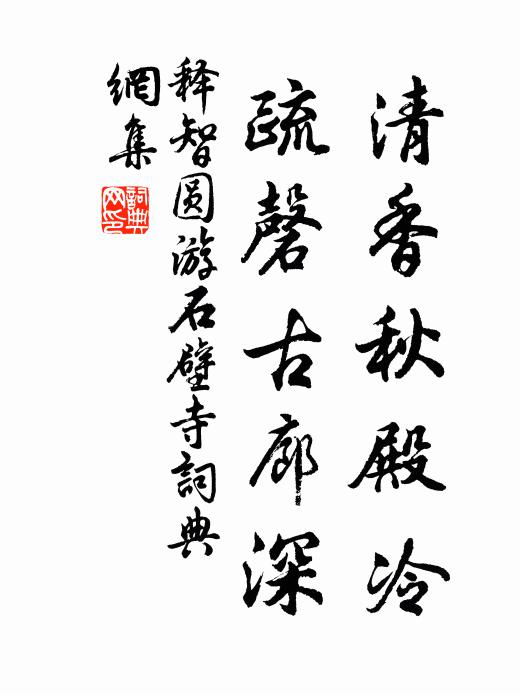 清香秋殿冷
疏磬古廊深
释智圆游石壁寺詞典
網集
詞典
网印